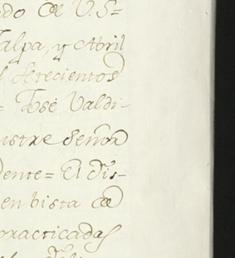 do de V. S=
alpa, y Abril
setecientos
= José Valdi-
ustre Señor
dente = El dis-
en bista de
practicadas